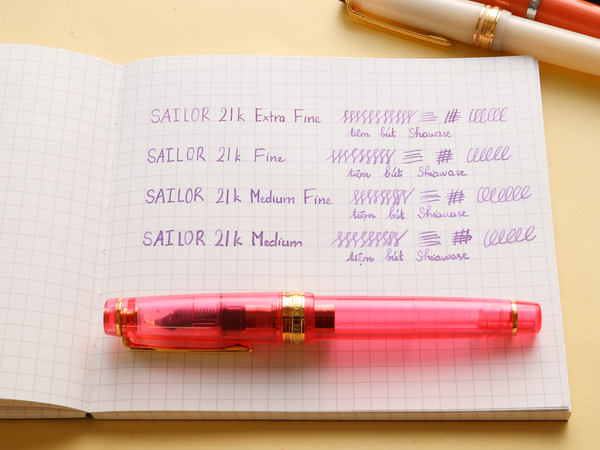 SAILOR 21k Extra Fine
tiệm bút Shiawase
SAILOR 21k Fine
tiệm bút Shiawase
SAILOR 21k Medium Fine
tiệm bút Shiawase
SAILOR 21k Medium
tiệm bút Shiawase